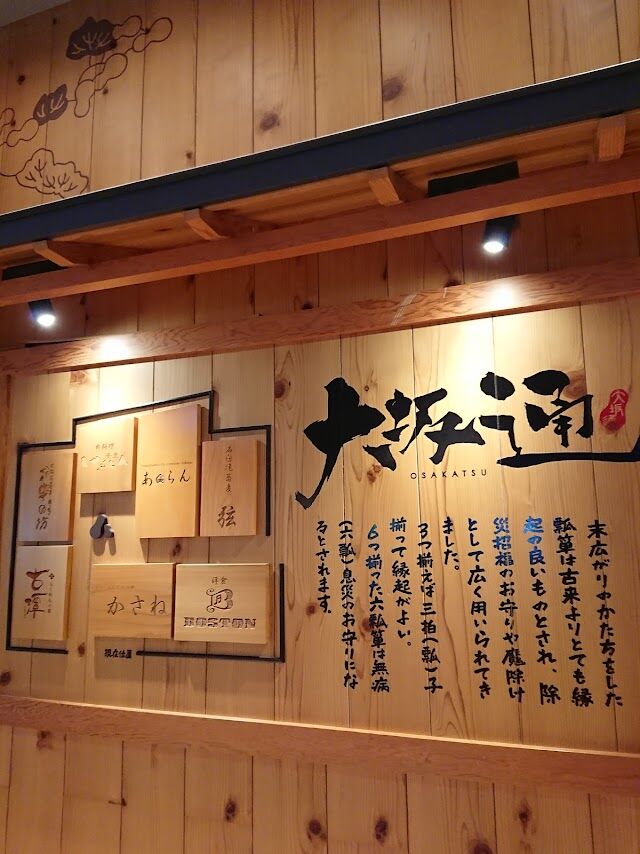 大坂通
OSAKATSU
末広がりのかたちをした
瓢箪は古来よりとても縁
起の良いものとされ、除
災招福のお守りや魔除け
として広く用いられてき
ました。
3つ揃えば三拍(瓢)子
揃って縁起がよい。
6つ揃った六瓢箪は無病
(六瓢)息災のお守りにな
るとされます。
あらん
石臼挽蕎麦
弦
かさね
洋食
BOSTON
現在位置